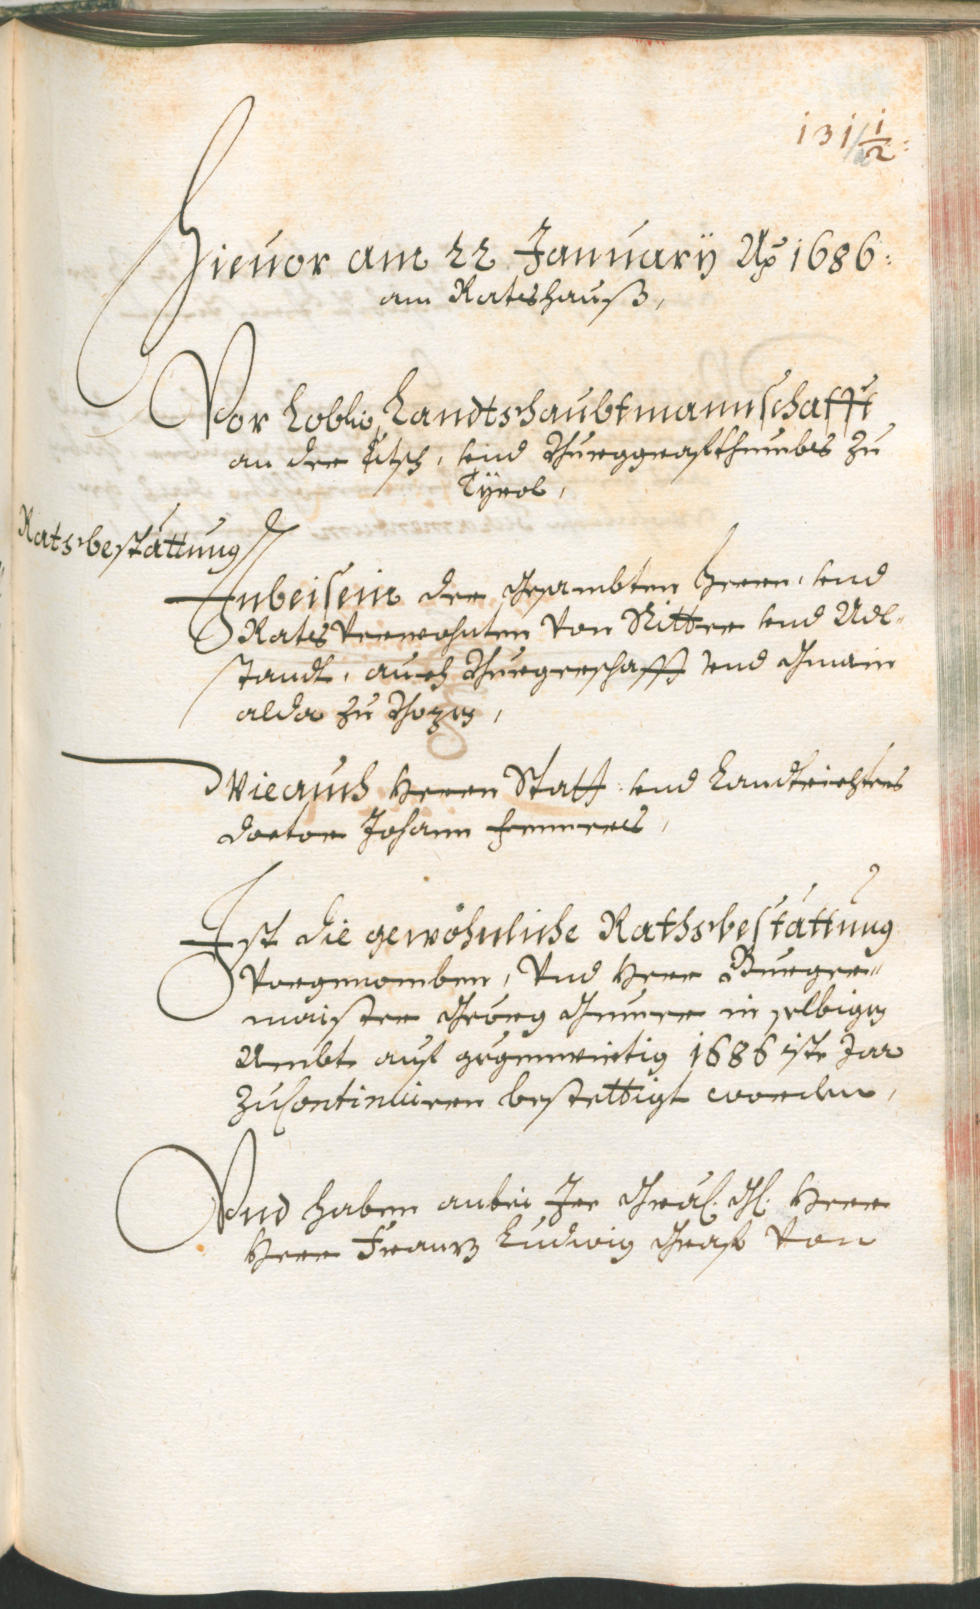 131 1/2:
Hieuor am 22 January Ao 1686:
am Ratshauß,
Vor Loblio. Landtshaubtmannschafft
an der Etsch, vnd Burggrafthumbs zu
Tyrol,
Ratsbestättung
In beisein der Gesambten Herrn, vnd
Rats Verwohnten von Ritter vnd Adl-
standt, auch Burgerschafft vnd Gmain
alda zu Bozen,
Wie auch Herrn Statt vnd Landrichters
doctor Johann
Ist die gewöhnliche Rathsbestättung
Vorgenomben, Vnd Herr Burger-
maister Georg in selbigen
Ambt auf gegenwirtig 1686iste Jar
Zu continuiren bestettigt worden,
Vnd haben anbei Jer Gräf. Gl. Herr
Herr Franz Ludwig Graf von